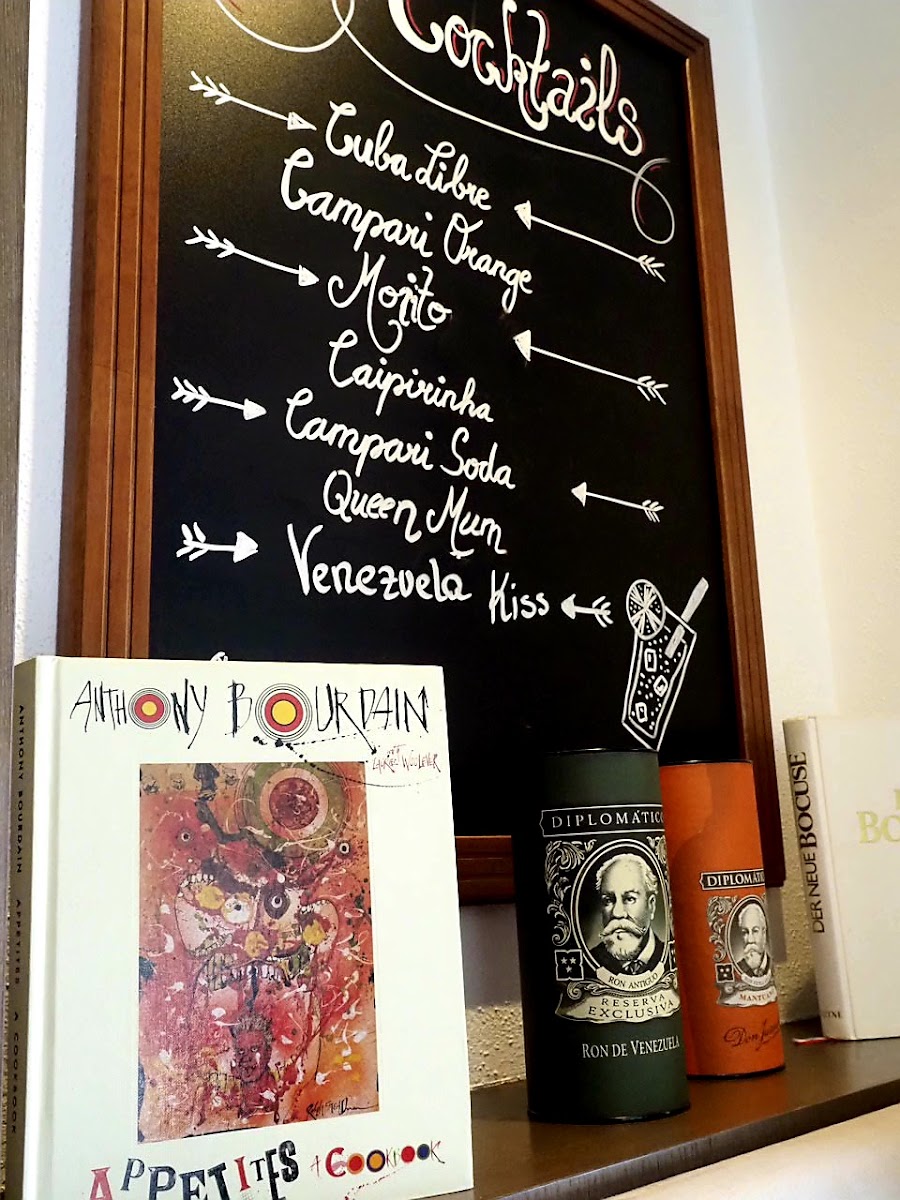 Cocktails
Cuba Libre
Campari Orange
Mojito
Caipirinha
Campari Soda
Queen Mum
Venezuela Kiss
ANTHONY BOURDAIN
WITH
LAURIE WOOLEVER
APPETITES A COOKBOOK
ANTHONY BOURDAIN APPETITES A COOKBOOK
DIPLOMÁTICO
RON ANTIGUO
RESERVA
EXCLUSIVA
RON DE VENEZUELA
DIPLOMÁTIC
MANTUAN
Don
DER NEUE BOCUSE